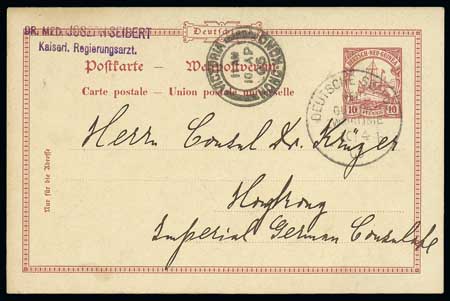 DR. MED. JOSEF SEIBERT
Kaiserl. Regierungsarzt.
Deutschland
Postkarte — Weltpostverein
Carte postale — Union postale universelle
DEUTSCH-NEU-GUINEA
10 10
VICTORIA HONG-KONG
10
DEUTSCHE
Nur für die Adresse
Herrn Consul Dr. Krüger
Hongkong
Imperial German Consulate